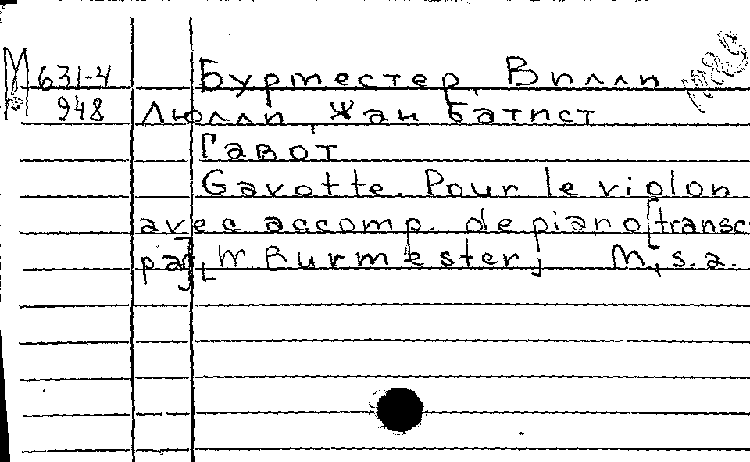 М 631-4
948
Бурместер, Вилли
Люлли, Жан Батист
Гавот
Gavotte. Pour le violon
avec accomp. de piano [transc
pa], [W Burmester] M, s.a.